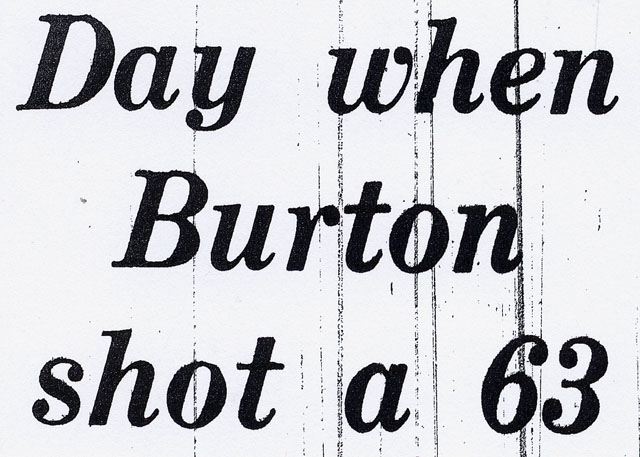 Day when
Burton
shot a 63